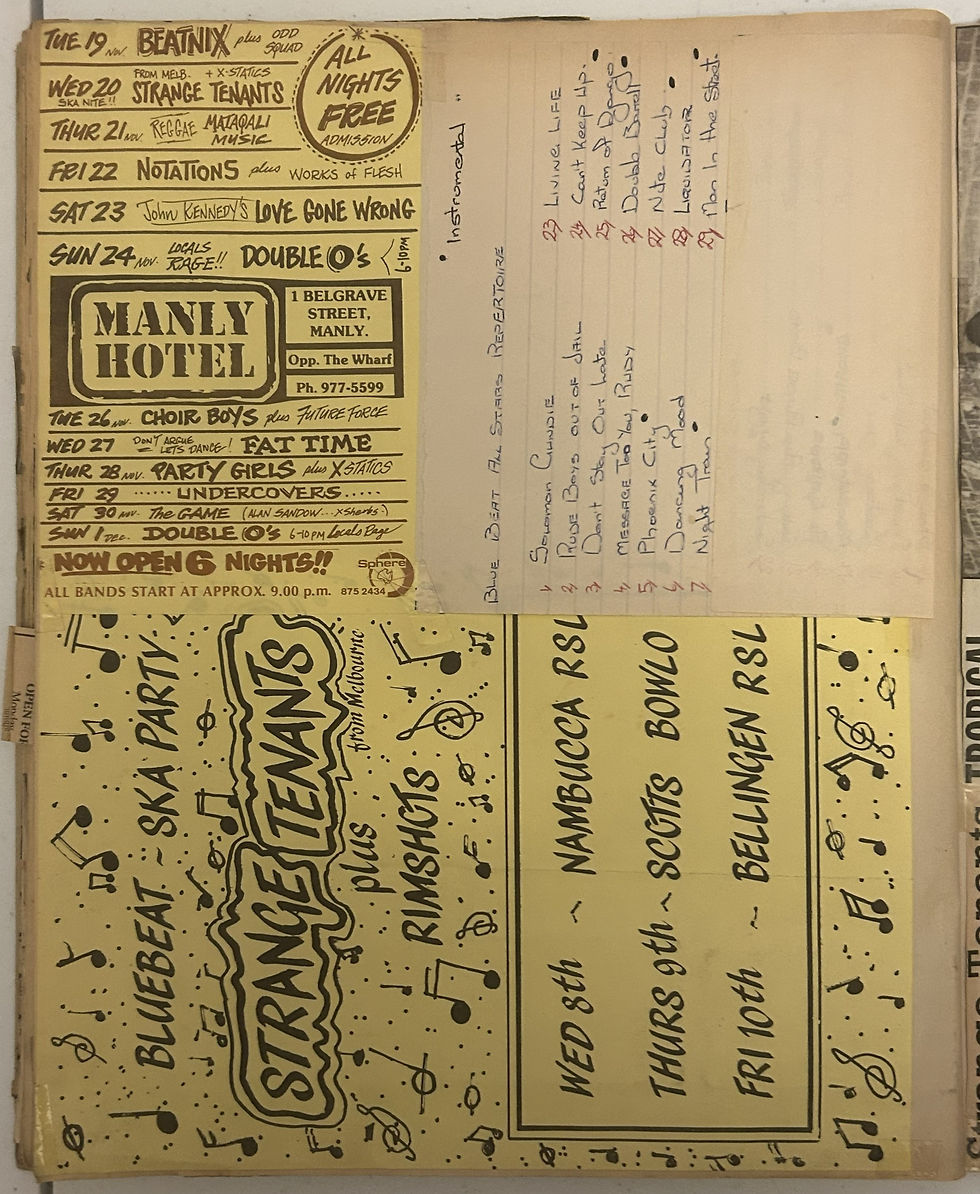 TUE 19 NOV. BEATNIX plus ODD SQUAD
WED 20 FROM MELB. + X-STATICS
SKA NITE!! STRANGE TENANTS
THUR 21 NOV REGGAE MATAQALI MUSIC
FRI 22 NOTATIONS plus WORKS of FLESH
SAT 23 John KENNEDY'S LOVE GONE WRONG
SUN 24 NOV. LOCALS RAGE!! DOUBLE O's 6-10PM
ALL
NIGHTS
FREE
ADMISSION
MANLY
HOTEL
1 BELGRAVE
STREET,
MANLY.
Opp. The Wharf
Ph. 977-5599
TUE 26 NOV. CHOIR BOYS plus FUTURE FORCE
WED 27 DON'T ARGUE LETS DANCE! FAT TIME
THUR 28 NOV. PARTY GIRLS plus X STATICS
FRI 29 ...... UNDERCOVERS .....
SAT 30 NOV. The GAME (ALAN SANDOW...xSherbs)
SUN 1 DEC. DOUBLE O's 6-10PM Locals Rage
NOW OPEN 6 NIGHTS!!
Sphere
ALL BANDS START AT APPROX. 9.00 p.m. 875 2434
• Instrumental "
BLUE BEAT ALL STARS REPERTOIRE
1/ SOLOMON GUNDIE
2/ RUDE BOYS OUT OF JAIL
3/ Don't Stay Out Late
4/ MESSAGE TO YOU, RUDY
5/ Phoenix City •
6/ Dancing Mood
7/ Night Train •
23/ LIVING LIFE
24/ Can't Keep Up.
25/ Return of Django •
26/ Double Barrell •
27/ Nite Club.
28/ LIQUIDATOR •
29/ Man In the Street. •
BLUEBEAT ~ SKA PARTY
STRANGE TENANTS
from Melbourne
plus
RIMSHOTS
WED 8th ~ NAMBUCCA RSL
THURS 9th ~ SCOTTS BOWLO
FRI 10th ~ BELLINGEN RSL
OPEN FO